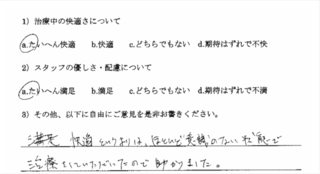 1）治療中の快適さについて
a.たいへん快適　b.快適　c.どちらでもない　d.期待はずれで不快
2）スタッフの優しさ・配慮について
a.たいへん満足　b.満足　c.どちらでもない　d.期待はずれで不満
3）その他、以下に自由にご意見を是非お書きください。
満足 快適というよりは、ほとんど意識のない状態で
治療をしていただいたので助かりました。